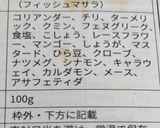 (フィッシュマサラ)
コリアンダー、チリ、ターメリ
ック、クミン、フェヌグリーク、
食塩、こしょう、レースフラワ
ー、マンゴー、しょうが、マス
タード、ひら豆、クローブ、
ナツメグ、シナモン、キャラウ
ェイ、カルダモン、メース、
アサフェティダ
100g
枠外・下方に記載